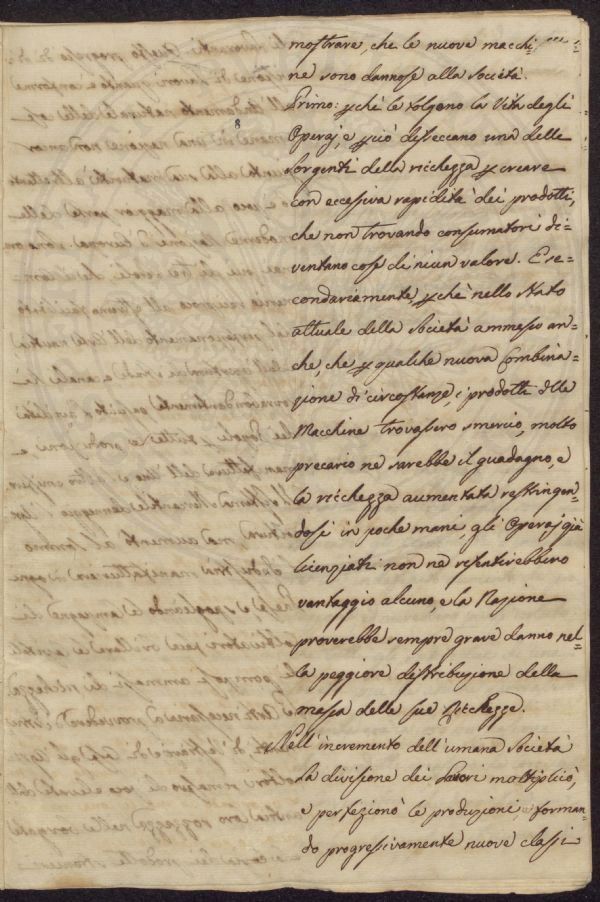 mostrare, che le nuove macchi=
ne sono dannose alla società.
Primo: pchè le tolgono la Vita degli
Operaj, e pciò diseccano una delle
sorgenti della ricchezza p creare
con eccessiva rapidità dei prodotti,
che non trovando consumatori di=
ventano cose di niun valore. E se=
condariamente pchè nello stato
attuale della Società ammesso an=
che, che p qualche nuova Combina=
zione di circostanze, i prodotti dlle
Macchine trovassero smercio, molto
precario ne sarebbe il guadagno, e
la ricchezza aumentata restringen=
dosi in poche mani, gli Operaj già
licenziati non ne resentirebbero
vantaggio alcuno, e la Nazione
proverebbe sempre grave danno nel=
la peggiore distribuzione della
massa delle sue Ricchezze.
Nell'incremento dell'umana Società
la divisione dei Lavori moltiplicò,
e perfezionò le produzioni forman
do progressivamente nuove classi